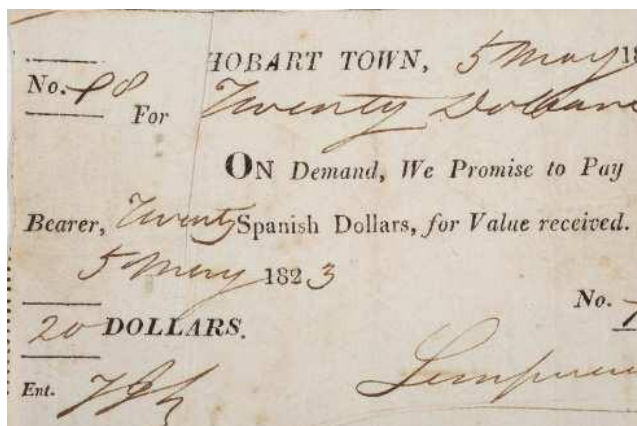 HOBART TOWN, 5 May 18
No. 98
For Twenty Dollars
ON Demand, We Promise to Pay
Bearer, Twenty Spanish Dollars, for Value received.
5 May 1823
No.
20 DOLLARS.
Ent.